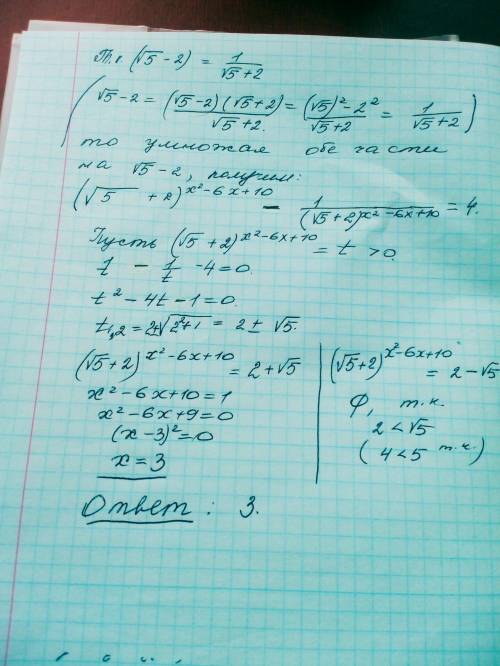 Т.к. (√5 - 2) = 1/(√5+2)
(√5 - 2 = (√5-2)(√5+2)/(√5+2) = ((√5)² - 2²)/(√5+2) = 1/(√5+2))
то умножая обе части
на √5-2, получим:
(√5 + 2)^(x²-6x+10) - 1/(√5+2)^(x²-6x+10) = 4.
Пусть (√5+2)^(x²-6x+10) = t > 0.
t - 1/t - 4 = 0.
t² - 4t - 1 = 0.
t₁,₂ = 2±√(2²+1) = 2 ± √5.
(√5+2)^(x²-6x+10) = 2+√5
x² - 6x + 10 = 1
x² - 6x + 9 = 0
(x-3)² = 0
x = 3
(√5+2)^(x²-6x+10) = 2-√5
Ф, т.к.
2 < √5
(4 < 5 т.к.)
Ответ: 3.